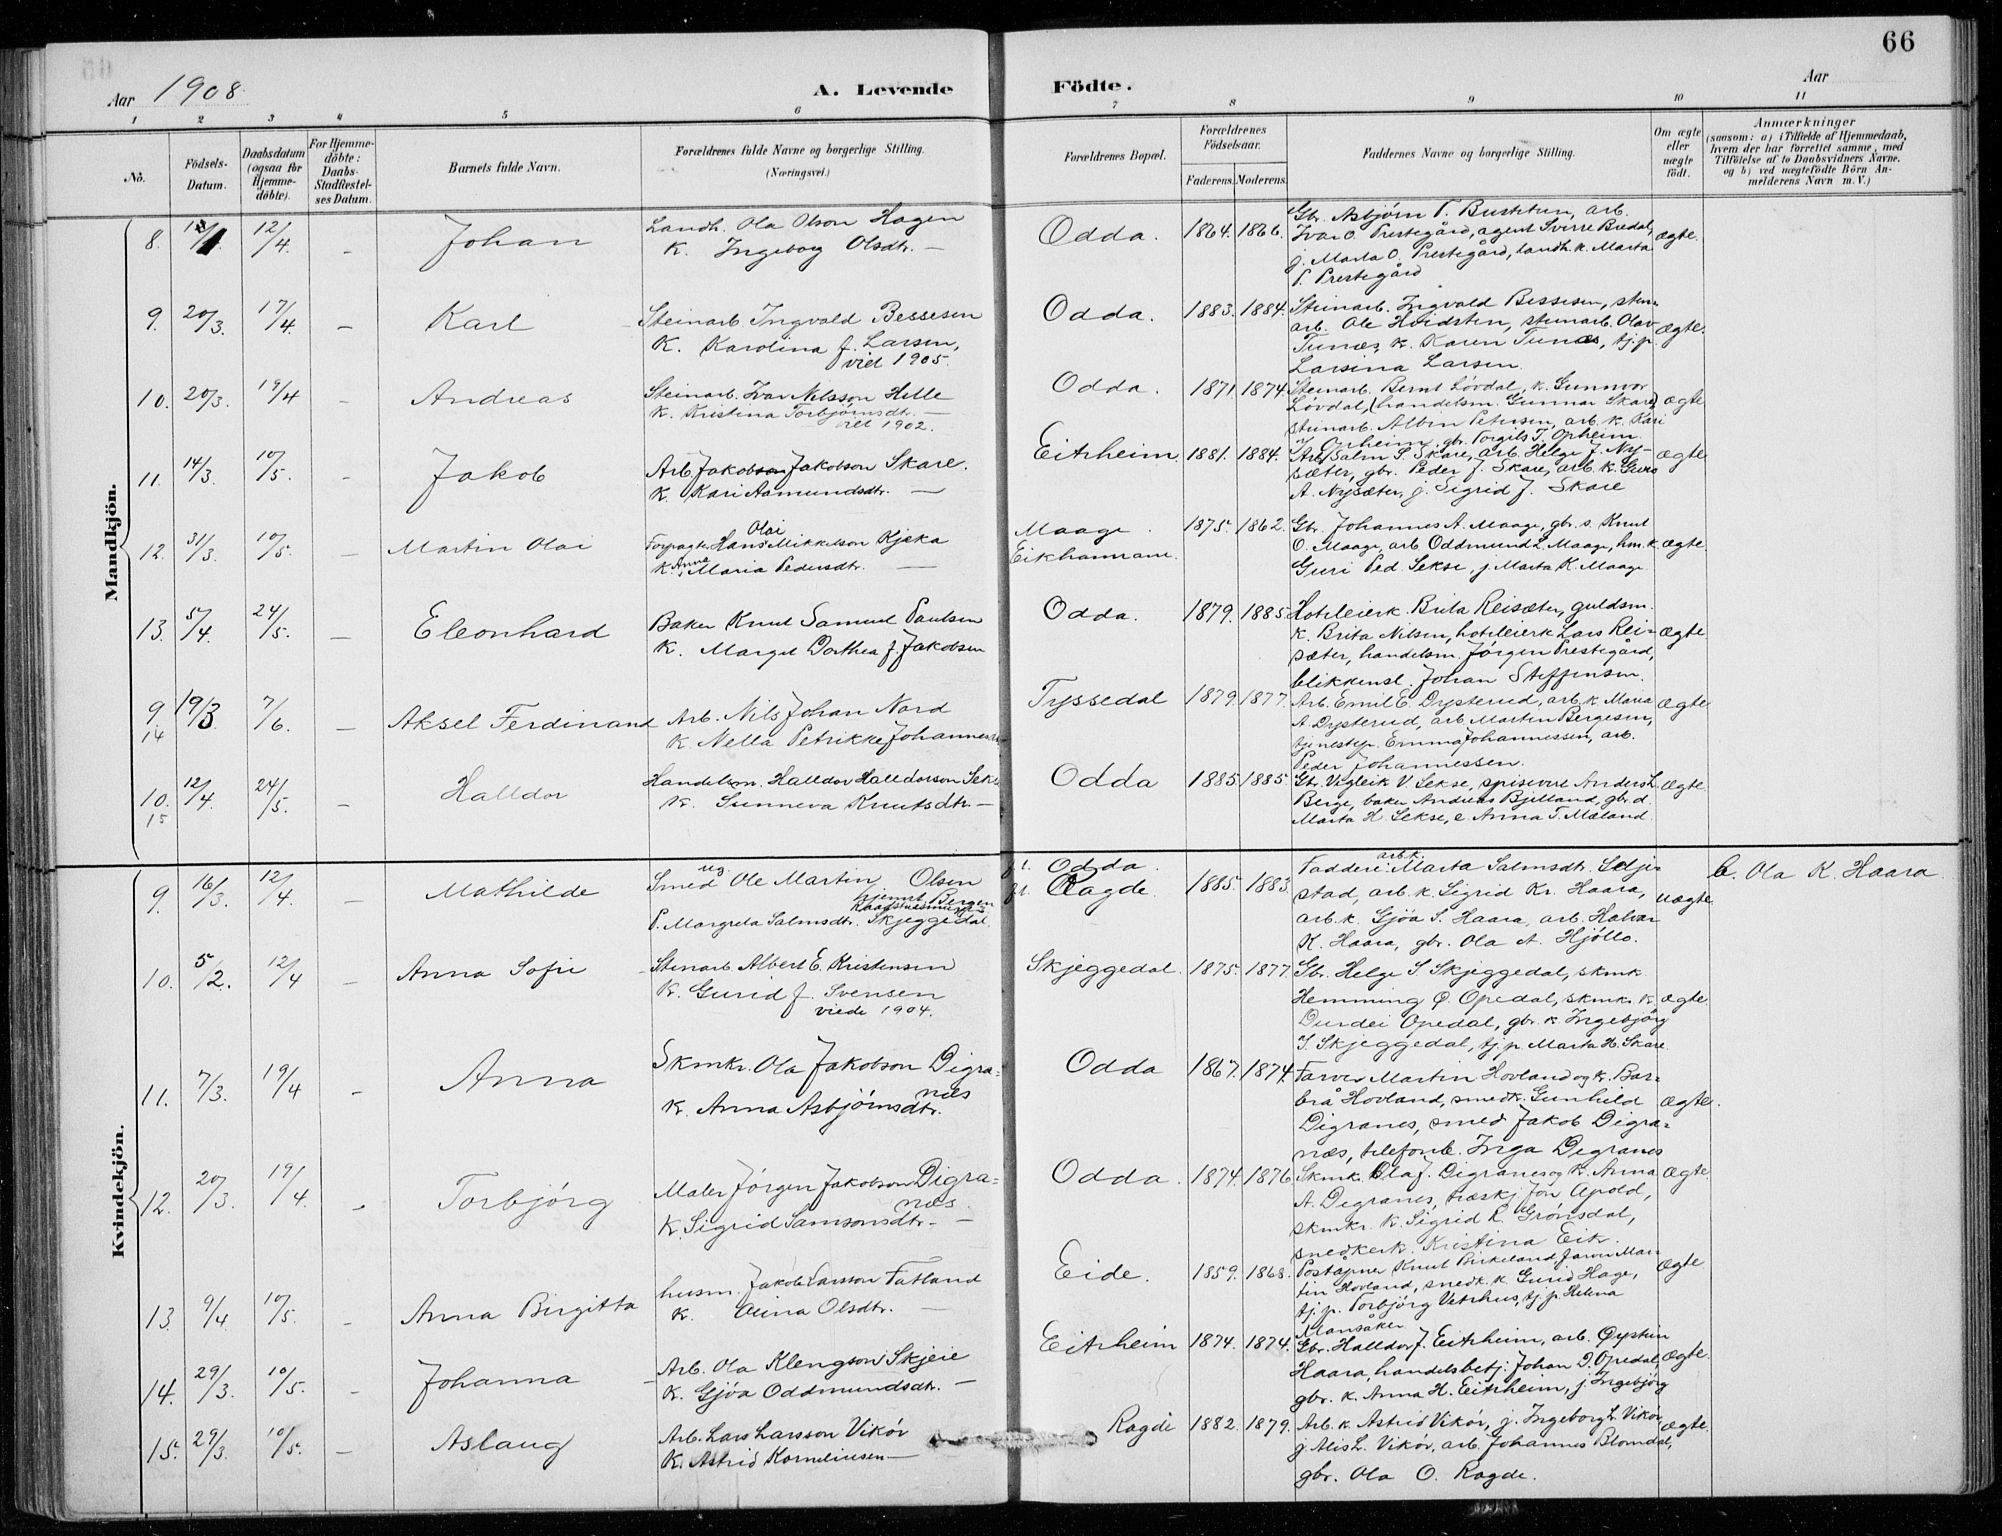 66
Aar 1908.
A. Levende Födte.
Aar
1 2 3 4 5 6 7 8 9 10 11
No.
Födsels-Datum.
Daabsdatum (ogsaa for Hjemme-döbte).
For Hjemme-döbte: Daabs-Stadfæstel-ses Datum.
Barnets fulde Navn.
Forældrenes fulde Navne og borgerlige Stilling.
(Næringsvei.)
Forældrenes Bopæl.
Forældrenes Födselsaar.
Faderens. Moderens.
Faddernes Navne og borgerlige Stilling.
Om ægte eller uægte födt.
Anmærkninger
(saasom: a) i Tilfælde af Hjemmedaab,
hvem der har forrettet samme, med
Tilföielse af to Daabsvidners Navne.
og b) ved uægtefödte Börn An-
melderens Navn m. V.)
Mandkjön.
8. 12/4. - Johan
Landh. Ola Olson Hagen
K. Ingeborg Olsdtr. -
Odda. 1864. 1866.
Gbr. Asbjörn T. Bustetun, arb.
Ivar O. Prestegård, agent Sverre Bredal,
j. Marta O. Prestegård, landh. k. Marta
T. Prestegård
ægte.
9. 20/3. 17/4. - Karl
Steinarb. Ingvald Bessesen
K. Karolina f. Larsen,
viet 1905.
Odda. 1883. 1884.
Steinarb. Ingvald Bessesen, sten-
arb. Ole Hvidsten, stenarb. Olav
Tunæs, k. Karen Tunæs, tj.p.
Larsina Larsen.
ægte.
10. 20/3. 19/4 - Andreas
Steinarb. Ivar Nilsson Helle
K. Kristina Torbjörnsdtr. -
viet 1902.
Odda. 1871. 1874.
Steinarb. Bernt Lövdal, k. Gunnvor
Lövdal, (handelsm. Gunnar Skare)
stenarb. Albin Petersen, arb. k. Kari
T. Opheim, gbr. Torgils T. Opheim.
ægte
11. 14/3. 10/5. - Jakob
Arb. Jakob Jakobson Skare.
K. Kari Aamundsdtr. -
Eitrheim 1881. 1884.
Arb. Salm S. Skare, arb. Helge J. Ny-
sæter, gbr. Peder J. Skare, arb. k. Guro
A. Nysæter, j. Sigrid J. Skare
ægte
12. 31/3. 10/5. - Martin Olai
Forpagt. Hans Olai Mikkelson Kjeka
K. Anna Maria Pedersdtr. -
Maage.
Eikhamrane.
1875. 1862.
Gbr. Johannes A. Maage, gbr. s. Knut
O. Maage, arb. Oddmund L. Maage, hm. k.
Guri Ped. Sekse, j. Marta K. Maage
ægte.
13. 5/4. 24/5. - Eleonhard
Baker Knut Samuel Paulsen
K. Marget Dorthea f. Jakobsen
Odda. 1879. 1885.
Hoteleierk. Brita Reisæter, guldsm.
k. Brita Nilsen, hoteleierk Lars Rei-
sæter, handelsm. Jörgen Prestegård,
blikkensl. Johan Steffensen.
ægte
9 14 19/3. 7/6. - Aksel Ferdinand
Arb. Nils Johan Nord
K. Nella Petrikke Johannes
Tyssedal 1879. 1877.
Arb. Emil E. Dysterud, arb. k. Maria
A Dysterud, arb Martin Bergesen,
tjenestep. Emma Johannessen, arb.
Peder Johannessen.
ægte
10. 15 12/4. 24/5. - Halldor
Handelsm. Halldor Halldorson Sekse
K. Sunneva Knutsdtr. -
Odda 1885. 1885.
Gbr. Vigleik V Sekse, spisevert Anders L.
Berge, baker Andreas Bjelland, gbr. d.
Marta H. Sekse, e Anna T. Mæland.
ægte.
Kvindekjön.
9. 16/3. 12/4. Mathilde
Smed ug. Ole Martin Olsen
hjemst Bergen
P. Margreta Salmsdtr. Skjeggedal
Odda.
Ragde
1885. 1883.
Faddere: arb.k. Marta Salmsdtr. Seljestad, arb. k. Sigrid Kr. Haara,
arb. k. Gjöa S. Haara, arb. Halvar
K. Haara, gbr. Ola A. Hjöllo.
uægte
b. Ola K. Haara.
10. 5/2. 12/4 - Anna Sofie
Stenarb Albert E. Kristensen
K. Gurid f. Svensen
viede 1904.
Skjeggedal. 1875. 1877.
Gbr. Helge S Skjeggedal, skmk
Hemming O. Opedal, skmkr. k.
Durdei Opedal, gbr. k Ingebjörg
S. Skjeggedal, tj. p. Marta H. Skare.
ægte
11. 7/3. 19/4 - Anna
Skmkr. Ola Jakobson Digra-
næs
K. Anna Asbjörnsdtr.
Odda 1867. 1874.
Farver Martin Hovland og k. Bar-
brå Hovland, smedk. Gunhild
Digranes, smed Jakob Digra-
næs, telefonb. Inga Digranes
ægte.
12. 20/3. 19/4. - Torbjörg
Maler Jörgen Jakobson Digra-
næs.
K. Sigrid Samsonsdtr. -
Odda. 1874. 1876
Skmk. Ola J. Digranes og k. Anna
A. Digranes, træskj. Jon Apold,
skmkr. k. Sigrid L. Grönsdal,
snedkerk. Kristina Eik.
ægte.
13. 9/4. 10/5. - Anna Birgitta
husm. Jakob Larsson Tatland
K. Anna Olsdtr. -
Eide. 1859. 1868.
Poståpner Knut Birkeland, farver Mar-
tin Hovland, snedk. k. Gurid Hage,
tj. p. Torbjörg Vetrhus, tj. p. Helena
Mansåker
ægte
14. 29/3. 10/5. - Johanna
Arb. Ola Klengson Skjeie
K. Gjöa Oddmundsdtr. -
Eitrheim 1874. 1874.
Gbr. Halldor J. Eitrheim, arb. Öystein
Haara, handelsbetj. Johan D. Opedal,
gbr. k. Anna H. Eitrheim, j. Ingebjörg
ægte.
15. 29/3. 10/5. - Aslaug
Arb. Lars Larsson Vikör
K. Astrid Korneliusen -
Ragde 1882. 1879.
Arb. k. Astrid Vikör, j. Ingeborg L. Vikör,
j. Alis L. Vikör, arb. Johannes Blomdal,
gbr. Ola O. Ragde.
ægte